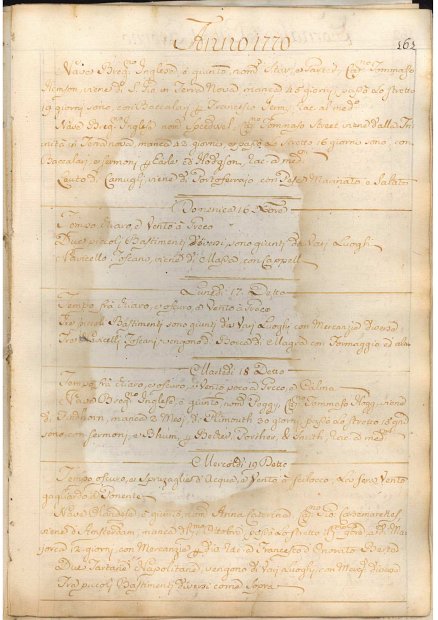 Anno 1770
161
Nave Breg.º Inglese è giunto, nom.º Star, e Cap.º Tommaso
viene di S. in Terra Nova manca 45 giorni, passò lo stretto
19 giorni sono, con Baccalari, p Francesco Jermy, rac. al med.º
Nave Breg.º Inglese nom.º Speedwel, Tommaso Street viene dalla Tri-
nità in Terranova, manca 42 giorni, e passò lo stretto 16 giorni sono, con
Baccalari, e sermoni, p Earle ed Hodgson, rac. al med.
Leuto di Camugli, viene di Portoferrajo con Pesce Marinato e Salato
Domenica 16 Xbre
Tempo chiaro, e Vento a Greco
Due piccoli Bastimenti diversi, sono giunti da Varj Luoghi
Navicello Toscano, viene di Massa, con Cappelli
Lunedì 17 Detto
Tempo frà chiaro, e oscuro, e Vento a Greco
Tre piccoli Bastimenti sono giunti da Varj Luoghi con Mercanzie Diverse
Tre Navicelli Toscani vengono di Bocca di Magra con Formaggio ed
Martedì 18 Detto
Tempo frà chiaro, e oscuro, e Vento poco a Greco, e Calma
Nave Breg.º Inglese, è giunto, nom.º Poggy Tommaso viene
di manca 2 Mesi, e di Plimouth 30 giorni, passò lo stretto 15 gni
sono, con sermoni, e Rhum, p Porcher, & Smith, rac. al med.º
Mercordì 19 Detto
Tempo oscuro, e Spruzaglie d'Acqua, e Vento a Scilocco, e la sera Vento
gagliardo a Ponente
Nave Olandese è giunto, nom.º Anna Caterina
viene da Amsterdam, manca dal p.mo Ottobre, passò lo stretto gni sono, e da Ma-
jorca 12 giorni, con Mercanzie, p rac. a Francesco e
Due Tartane Napolitane, vengono di Varj Luoghi, con Merci diverse
Tre piccoli Bastimenti diversi come sopra